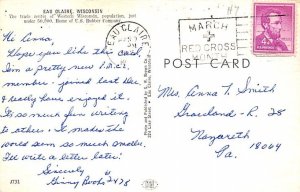 EAU CLAIRE, WISCONSIN
The trade center of Western Wisconsin, population, just
under 50,000. Home of U.S. Rubber Company.
Hi Anna
Hope you like this card,
I'm a pretty new I.M.C.
member - joined last Dec.
& really have enjoyed it.
It's so much fun writing
to others. It makes the
world seem so much smaller.
I'll write a letter later!
Sincerely
Ginny Books 2428
J731
EAU CLAIRE
MARCH
RED CROSS
POST CARD
Mrs. Anna L. Smith
Graceland - R. 28
Nazareth
Pa. 18064